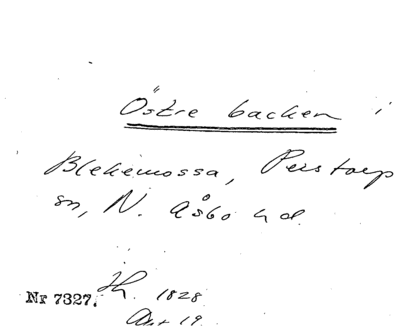 Östre backen i
Blekemossa, Perstorp
sn, N. Åsbo hd.
Nr 7327. Jh. 1828
Akt 19